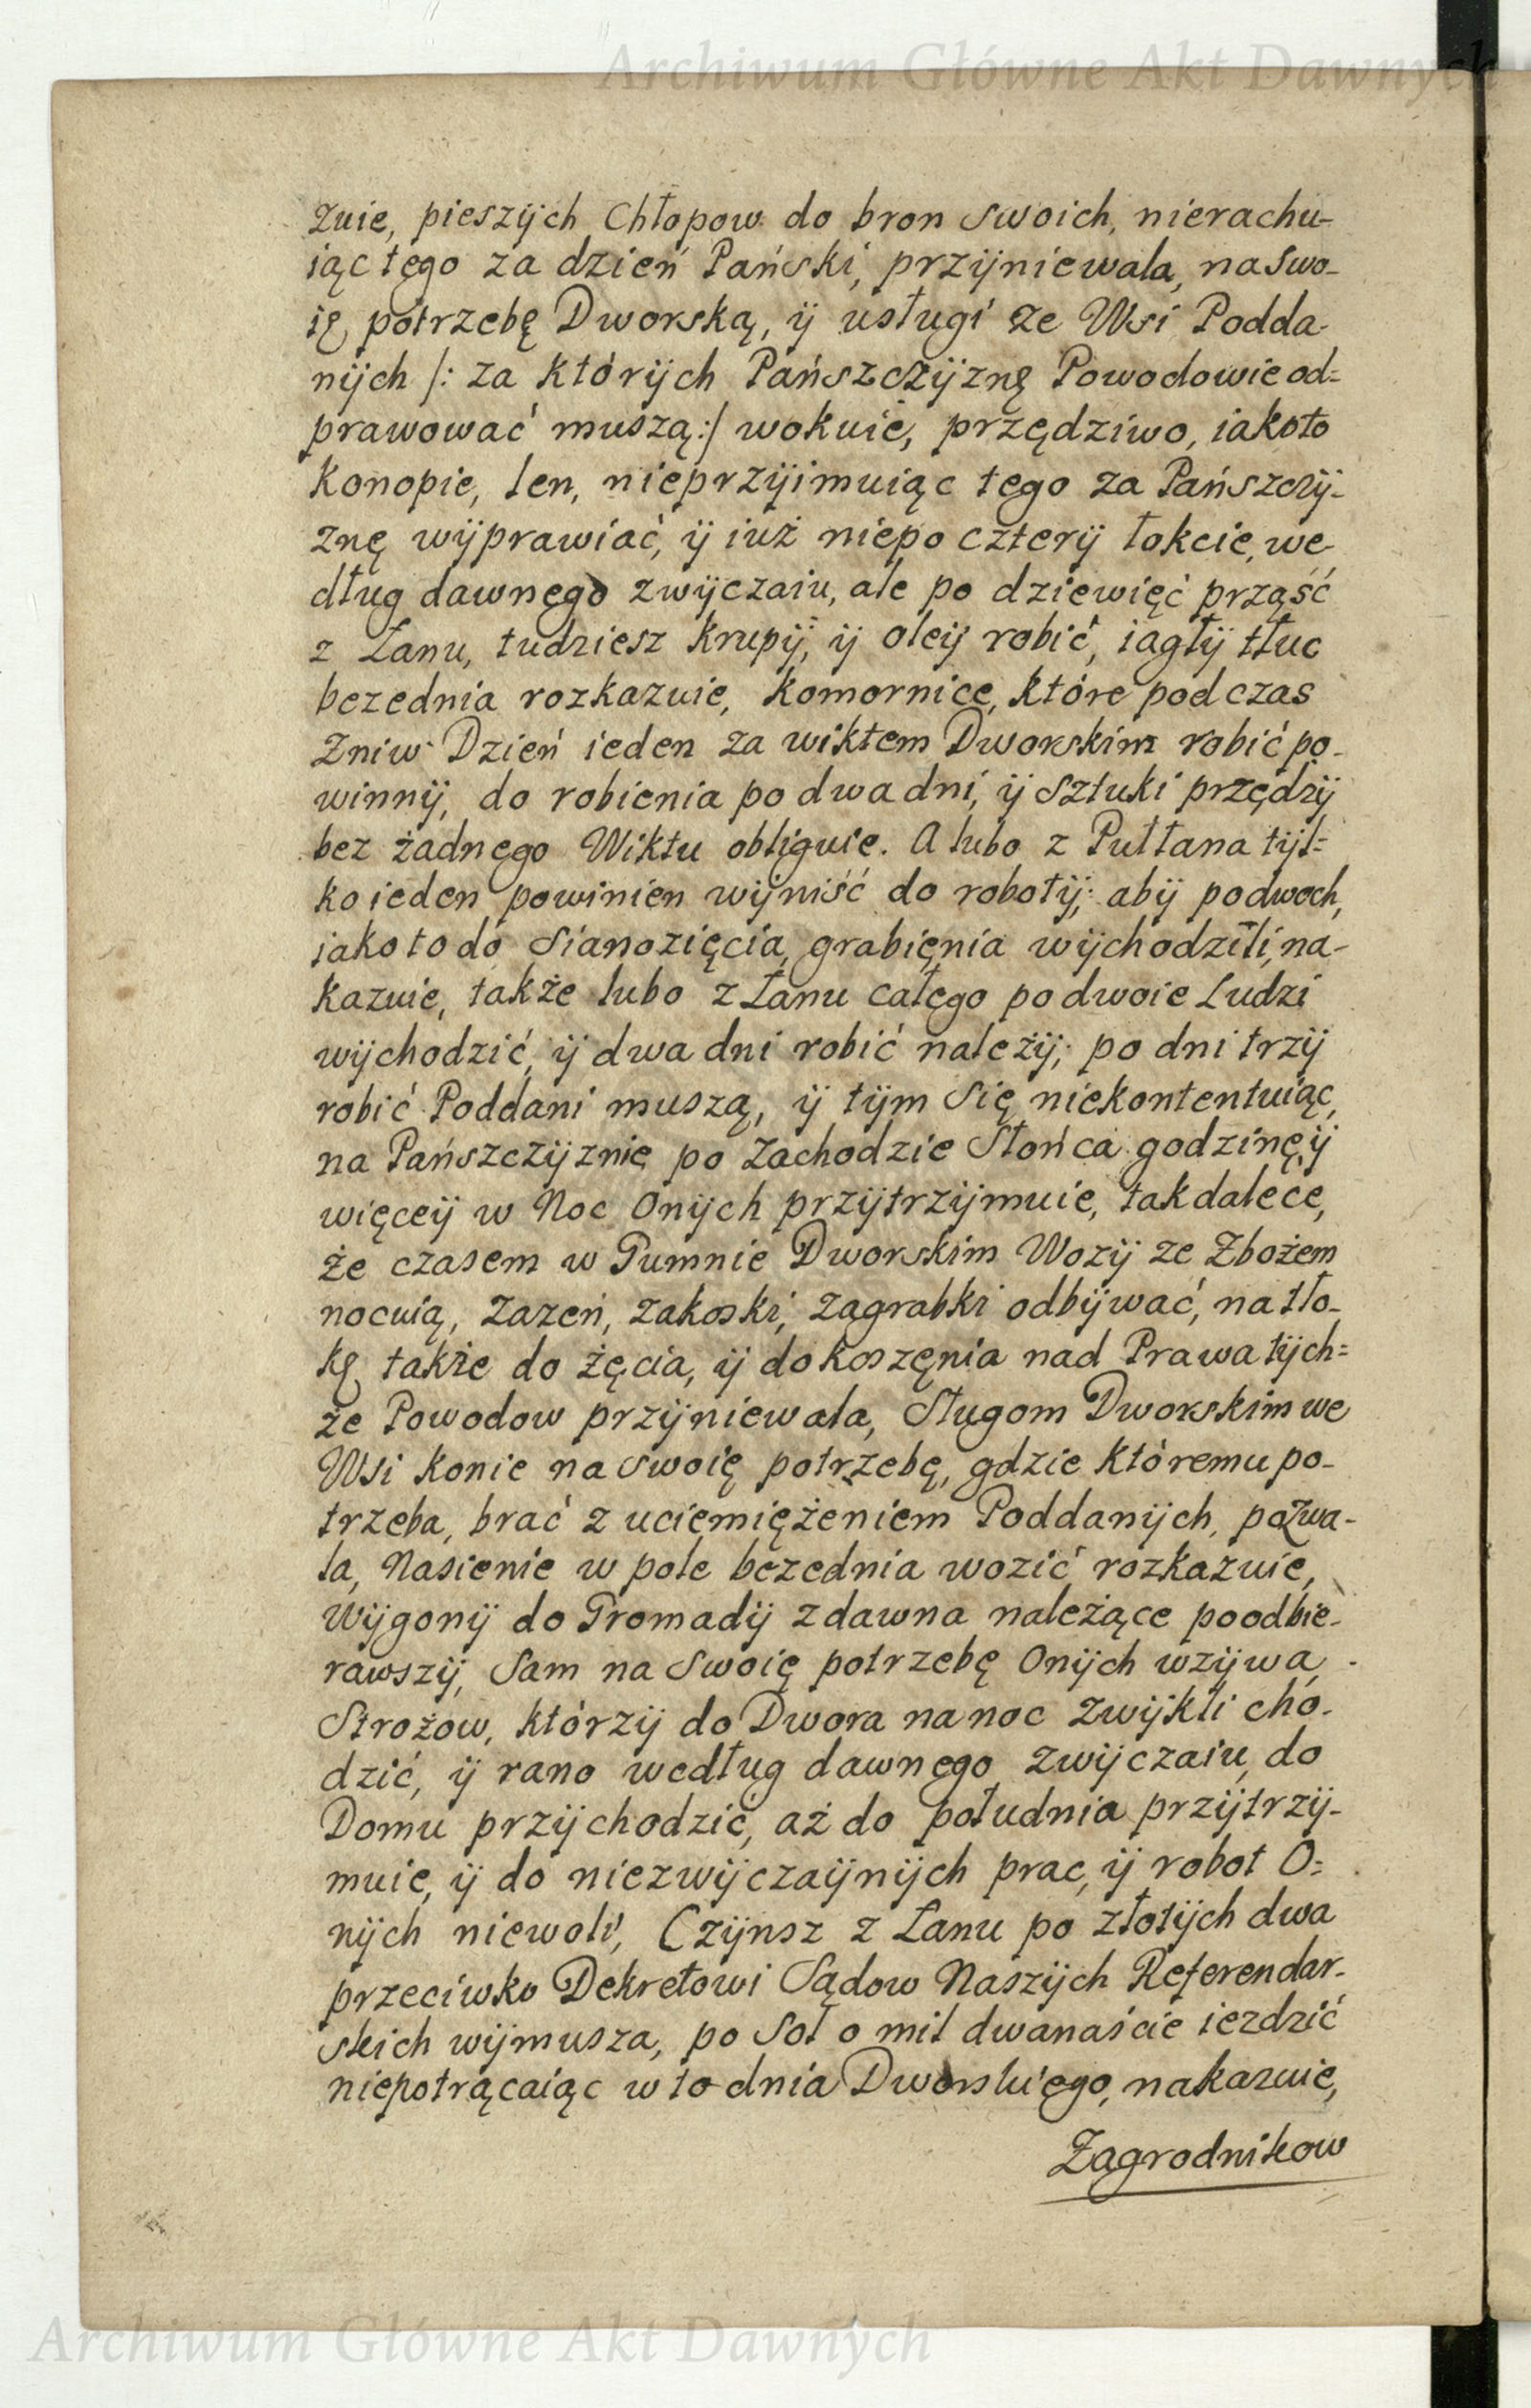 Archiwum Główne Akt Dawnych
zuie, pieszÿch Chłopow do bron swoich, nierachu-
iąc tego za dzień Pański, przÿniewala, na swo-
ię potrzebę Dworską, ÿ usługi ze Wsi Podda-
nÿch /: za którÿch Pańszczÿznę Powodowie od=
prawować muszą :/ wokuie, przędziwo, iakoto
Konopie, len, nieprzÿimuiąc tego za Pańszczÿ-
znę wÿprawiać, ÿ iuż niepo czterÿ łokcie, we-
dług dawnego zwÿczaiu, ale po dziewięć prząść
z Łanu, tudziesz Krupÿ, ÿ oleÿ robić, iagłÿ tłuc
bezednia rozkazuie, Komornice, które podczas
Zniw Dzień ieden za wiktem Dworskim robić po-
winnÿ, do robienia po dwa dni, ÿ sztuki przędzÿ
bez żadnego Wiktu obliguie. A lubo z Pułłana tÿl=
ko ieden powinien wÿniść do robotÿ, abÿ podwoch,
iako to do Sianozięcia, grabięnia wÿchodzili, na-
kazuie, także lubo z Łanu całego po dwoie Ludzi
wÿchodzić, ÿ dwa dni robić należÿ; po dni trzÿ
robić Poddani muszą, ÿ tÿm się niekontentuiąc,
na Pańszczÿznie po Zachodzie Słońca godzinę, ÿ
więceÿ w Noc Onÿch przÿtrzÿmuie, tak dalece,
że czasem w Gumnie Dworskim Wozÿ ze Zbożem
nocuią, Zazen, zakoski, zagrabki odbÿwać, na tło-
kę takze do żęcia, ÿ do koszęnia nad Prawa tÿch=
że Powodow przÿniewala, Sługom Dworskim we
Wsi Konie na swoię potrzebę, gdzie któremu po-
trzeba, brać z uciemiężeniem Poddanÿch, pozwa-
la, Nasienie w pole bezednia wozić rozkazuie,
Wÿgonÿ do Gromadÿ zdawna należące poodbie-
rawszÿ, Sam na Swoię potrzebę Onÿch wzÿwa,
Strożow, którzÿ do Dwora na noc zwÿkli cho-
dzić, ÿ rano według dawnego zwÿczaiu, do
Domu przÿchodzić, aż do południa przÿtrzÿ-
muie, ÿ do niezwÿczaÿnÿch prac, ÿ robot O=
nÿch niewoli, Czÿnsz z Łanu po złotÿch dwa
przeciwko Dekretowi Sądow Naszÿch Referendar-
skich wÿmusza, po Sol o mil dwanaście iezdzić
niepotrącaiąc w to dnia Dworskiego, nakazuie,
Zagrodnikow
Archiwum Główne Akt Dawnych